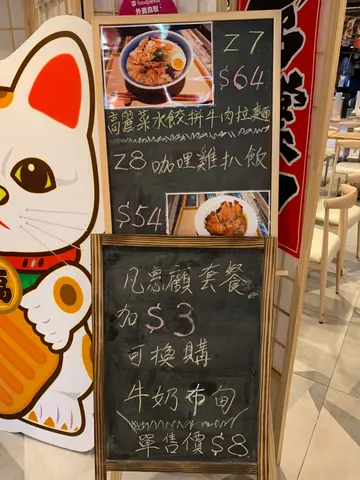 foodpanda
外賣自取
Z7
$64
高麗菜水餃拼牛肉拉麵
Z8 咖哩雞扒飯
$54
凡惠顧套餐
加 $3
可換購
牛奶布甸
單售價 $8